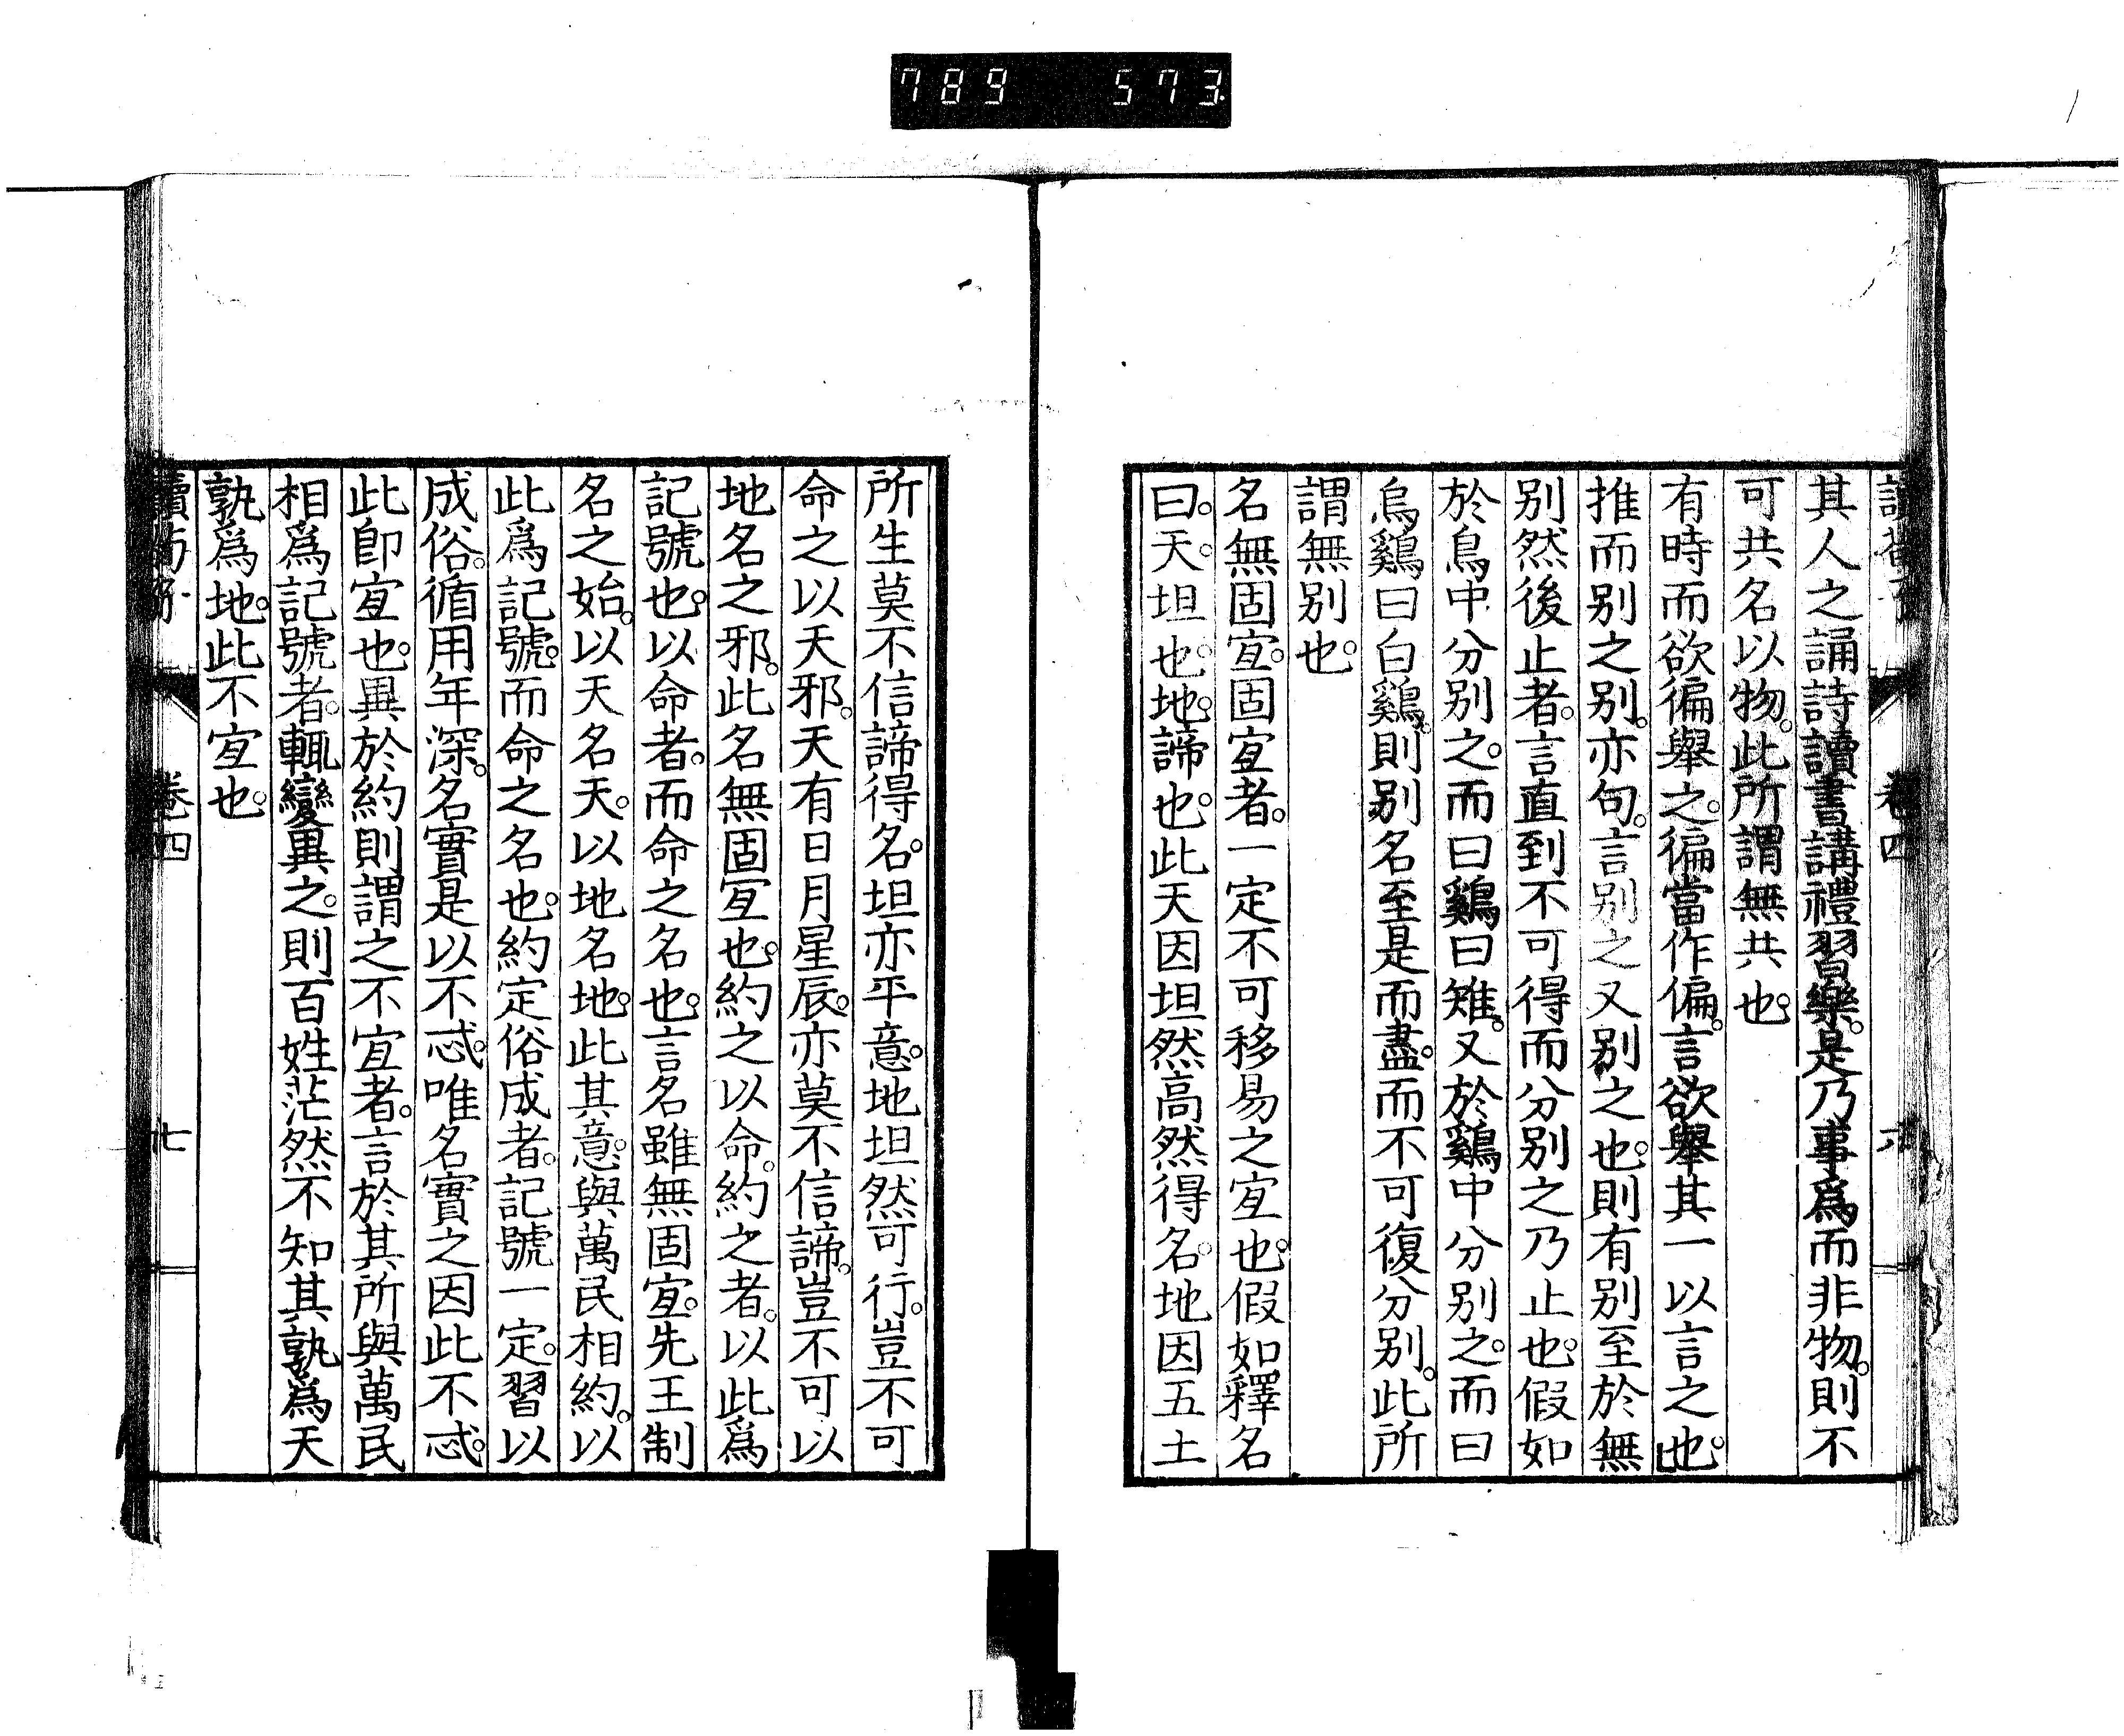 789 573
讀荀子 卷四 六
其人之誦詩讀書講禮習樂。是乃事爲而非物。則不
可共名以物。此所謂無共也。
有時而欲徧舉之。徧當作偏。言欲舉其一以言之也。
推而别之别。亦句。言别之又别之也。則有别至於無
别然後止者。言直到不可得而分别之乃止也。假如
於鳥中分别之。而曰鷄曰雉。又於鷄中分别之。而曰
烏鷄曰白鷄。則别名至是而盡。而不可復分别。此所
謂無别也。
名無固宜。固宜者。一定不可移易之宜也。假如釋名
曰。天。坦也。地。諦也。此天因坦然高然得名。地因五土
所生莫不信諦得名。坦亦平意。地坦然可行。豈不可
命之以天邪。天有日月星辰。亦莫不信諦。豈不可以
地名之邪。此名無固宜也。約之以命。約之者。以此爲
記號也。以命者。而命之名也。言名雖無固宜。先王制
名之始。以天名天。以地名地。此其意。與萬民相約。以
此爲記號。而命之名也。約定俗成者。記號一定。習以
成俗。循用年深。名實是以不忒。唯名實之因此不忒。
此卽宜也。異於約則謂之不宜者。言於其所與萬民
相爲記號者。輒變異之。則百姓茫然不知其孰爲天
孰爲地。此不宜也。
讀荀子 卷四 七